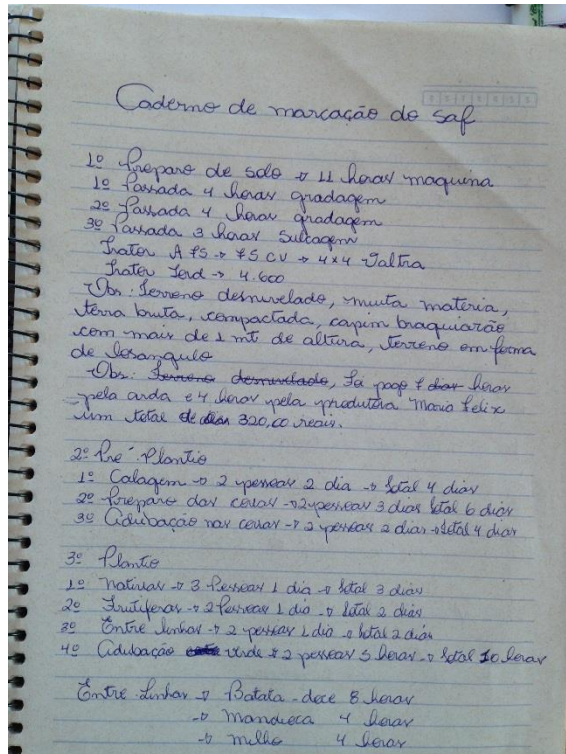 Caderno de marcação do saf
1º Preparo de solo → 11 horas maquina
1º Passada 4 horas gradagem
2º Passada 4 horas gradagem
3º Passada 3 horas sulcagem
Trator A 75 → 75 CV → 4x4 Valtra
Trator Ford → 4.600
Obs: Terreno desnivelado, muita materia,
terra bruta, compactada, capim braquiarão
com mais de 1 mt de altura, terreno em forma
de losangulo
Obs: Terreno desnivelado, Foi pago 7 dias horas
pela arda e 4 horas pela produtora Maria Felix
um total de 320,00 reais.
2º Pré-Plantio
1º Calagem → 2 pessoas 2 dia → total 4 dias
2º Preparo das covas → 2 pessoas 3 dias total 6 dias
3º Adubação nas covas → 2 pessoas 2 dias → total 4 dias
3º Plantio
1º nativas → 3 Pessoas 1 dia → total 3 dias
2º Frutiferas → 2 Pessoas 1 dia → total 2 dias
3º Entre linhas → 2 pessoas 1 dia → total 2 dias
4º Adubação verde → 2 pessoas 5 horas → total 10 horas
Entre Linhas → Batata-doce 8 horas
→ mandioca 4 horas
→ milho 4 horas